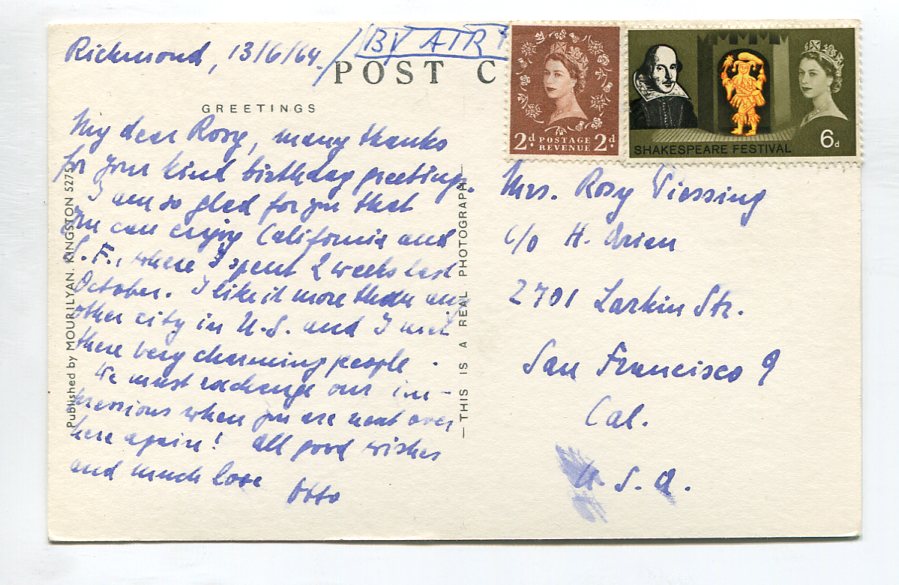 Richmond, 13/6/64.
BY AIR
POST C
GREETINGS
My dear Rosy, many thanks
for your kind birthday greetings.
I am so glad for you that
you can enjoy California and
S.F., where I spent 2 weeks last
October. I like it more than any
other city in U.S. and I met
there very charming people.
We must exchange our im-
pressions when you are next over
here again! All good wishes
and much love
Otto
Published by MOURILYAN, KINGSTON 5275
—THIS IS A REAL PHOTOGRAPH—
2d POSTAGE REVENUE 2d
SHAKESPEARE FESTIVAL 6d
Mrs. Rosy Piessing
c/o H. Arian
2701 Larkin Str.
San Francisco 9
Cal.
U.S.A.